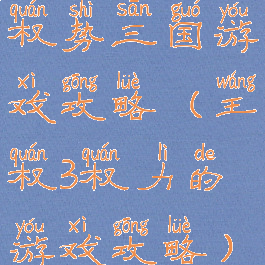 quán shì sān guó yóu
权势三国游
xì gōng lüè wáng
戏攻略(王
quán quán lì de
权3权力的
yóu xì gōng lüè
游戏攻略)